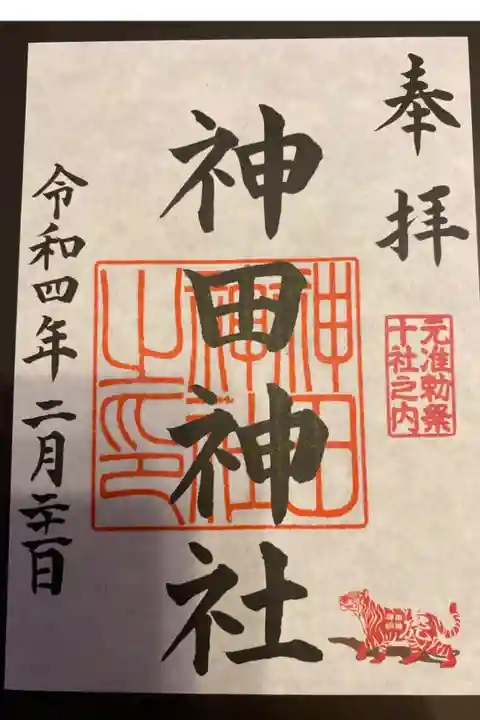 奉拝
元准勅祭
十社之内
神田神社
神田
神社
之印
令和四年二月二十一日